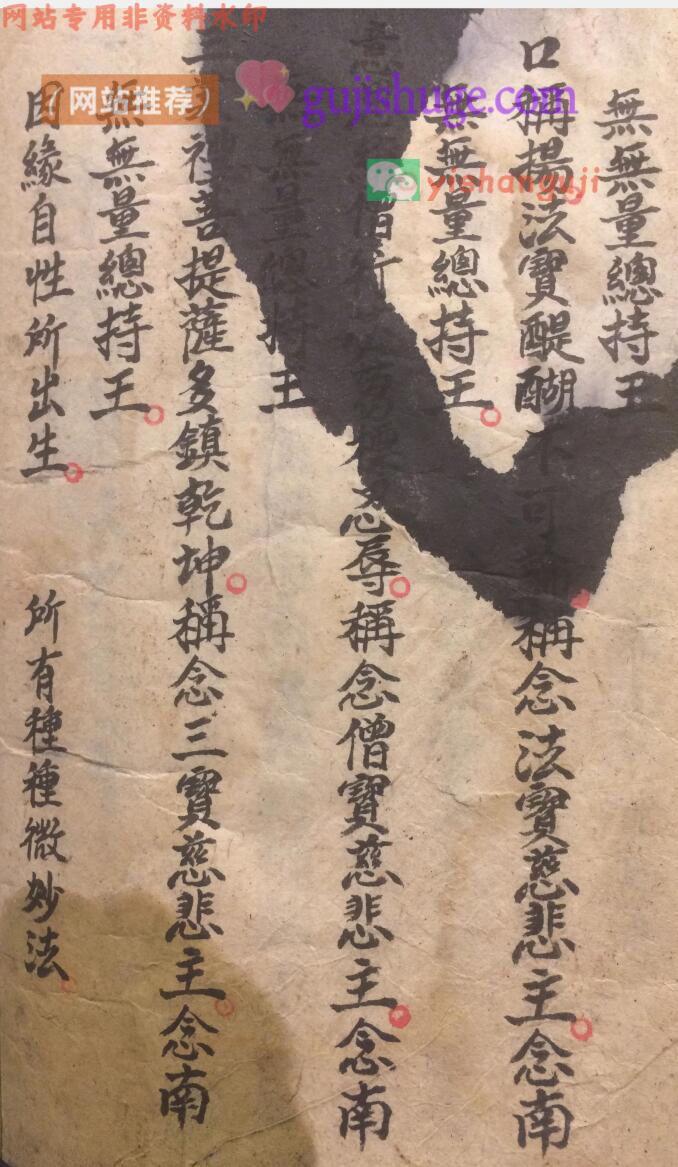 网站专用非资料水印
（网站推荐）
gujishuge.com
yishanguji
無無量總持王
口稱揚法寶醍醐不可 稱念法寶慈悲主念南
無無量總持王
意 僧行 忍辱稱念僧寶慈悲主念南
無無量總持王
一 禮菩提薩多鎮乾坤稱念三寶慈悲主念南
無無量總持王
因緣自性所出生 所有種種微妙法